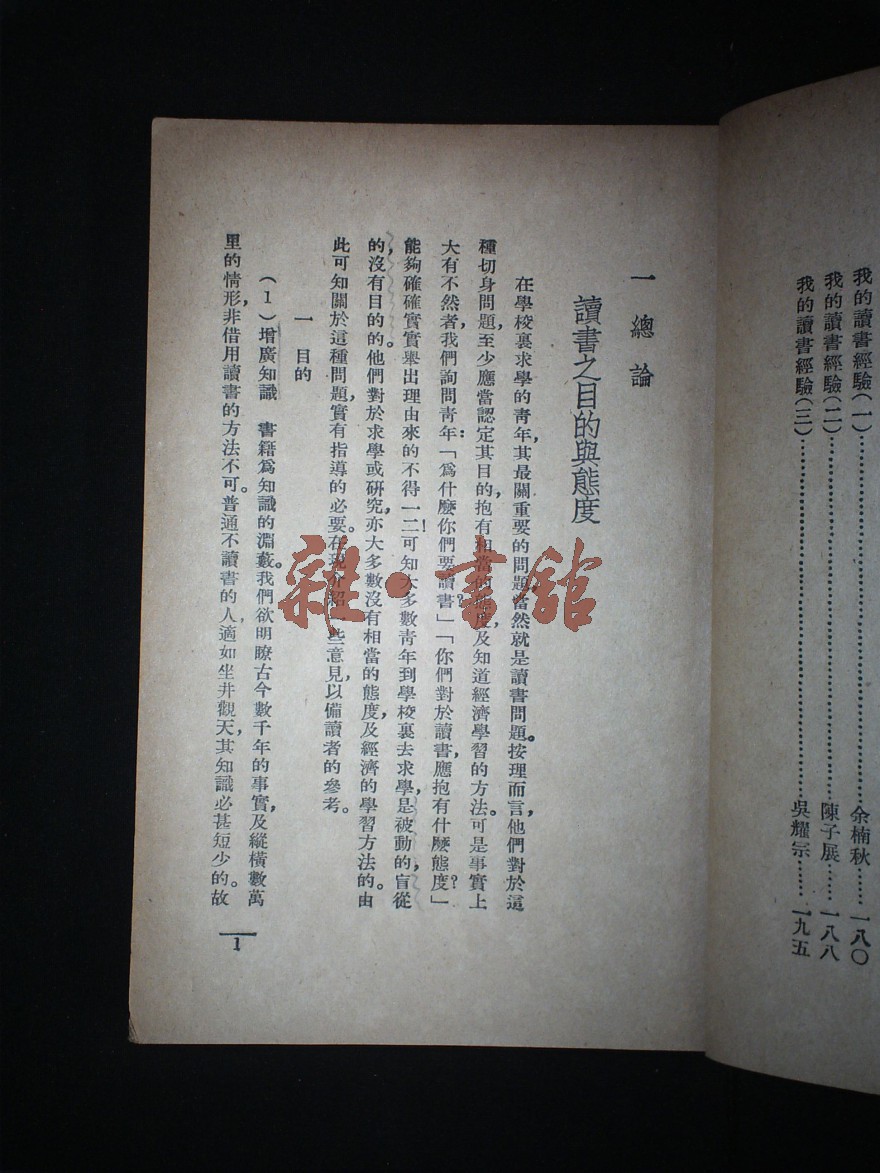 我的讀書經驗(一)……………………余楠秋……一八〇
我的讀書經驗(二)……………………陳子展……一八八
我的讀書經驗(三)……………………吳耀宗……一九五
一 總論
讀書之目的與態度
在學校裏求學的靑年,其最關重要的問題,當然就是讀書問題。按理而言,他們對於這
種切身問題,至少應當認定其目的,抱有相當的態度,及知道經濟學習的方法。可是事實上
大有不然者,我們詢問靑年:「爲什麽你們要讀書?」「你們對於讀書,應抱有什麽態度?」
能夠確確實實舉出理由來的不得一二!可知大多數靑年到學校裏去求學,是被動的,盲從
的,沒有目的的。他們對於求學或研究,亦大多數沒有相當的態度,及經濟的學習方法的。由
此可知關於這種問題,實有指導的必要。在現介紹一些意見,以備讀者的參考。
一 目的
(1)增廣知識 書籍爲知識的淵藪。我們欲明瞭古今數千年的事實,及縱橫數萬
里的情形,非借用讀書的方法不可。普通不讀書的人,適如坐井觀天,其知識必甚短少的。故
1
雜·書館